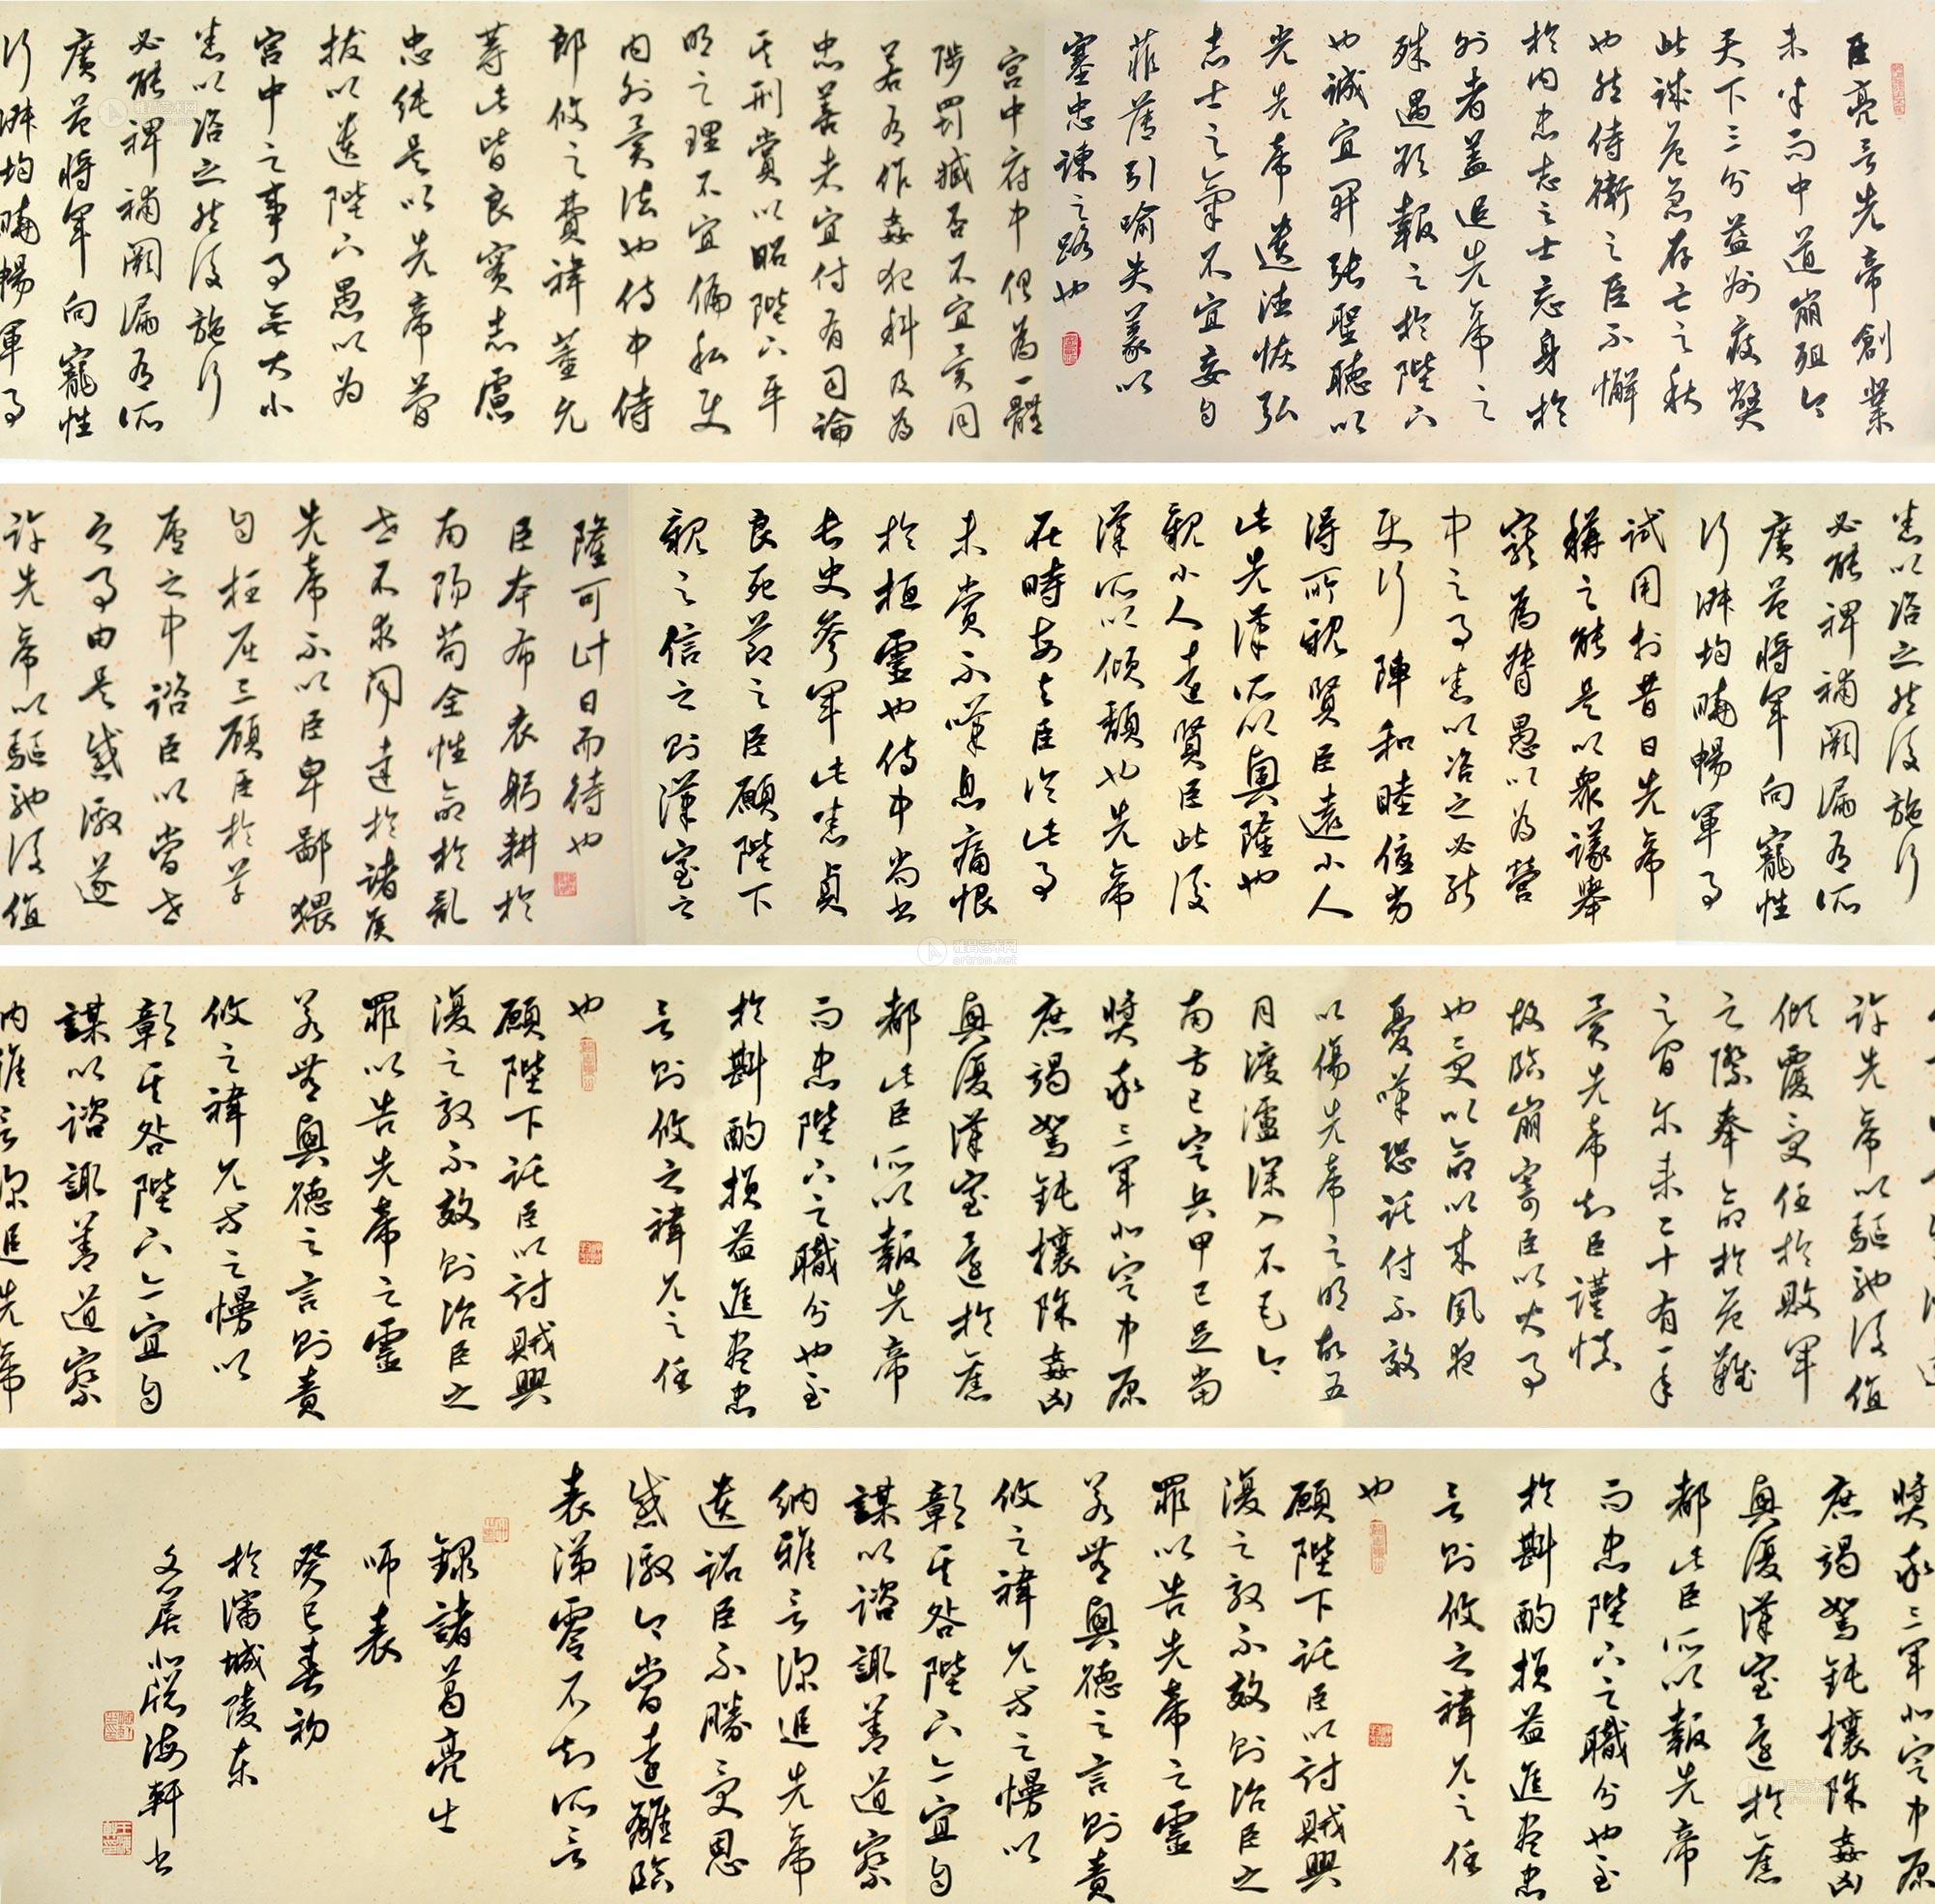 臣亮言先帝創業
未半而中道崩殂今
天下三分益州疲弊
此誠危急存亡之秋
也然侍衛之臣不懈
於内忠志之士忘身於
外者蓋追先帝之
殊遇欲報之於陛下
也誠宜開張聖聽以
光先帝遺德恢弘
志士之氣不宜妄自
菲薄引喻失義以
塞忠諫之路也
宮中府中俱為一體
陟罰臧否不宜異同
若有作姦犯科及為
忠善者宜付有司論
其刑賞以昭陛下平
明之理不宜偏私使
内外異法也侍中侍
郎攸之費禕董允
等此皆良實志慮
忠純是以先帝簡
拔以遺陛下愚以為
宮中之事事無大小
悉以咨之然後施行
必能裨補闕漏有所
廣益將軍向寵性
行淑均曉暢軍事
悉以咨之然後施行
必能裨補闕漏有所
廣益將軍向寵性
行淑均曉暢軍事
試用於昔日先帝
稱之能是以眾議舉
寵為督愚以為營
中之事悉以咨之必能
使行陣和睦優劣
得所親賢臣遠小人
此先漢所以興隆也
親小人遠賢臣此後
漢所以傾頹也先帝
在時每與臣論此事
未嘗不嘆息痛恨
於桓靈也侍中尚書
長史參軍此悉貞
良死節之臣願陛下
親之信之則漢室之
隆可計日而待也
臣本布衣躬耕於
南陽苟全性命於亂
世不求聞達於諸侯
先帝不以臣卑鄙猥
自枉屈三顧臣於草
廬之中諮臣以當世
之事由是感激遂
許先帝以驅馳後值
許先帝以驅馳後值
傾覆受任於敗軍
之際奉命於危難
之間爾來二十有一年
矣先帝知臣謹慎
故臨崩寄臣以大事
也受命以來夙夜
憂嘆恐託付不效
以傷先帝之明故五
月渡瀘深入不毛今
南方已定兵甲已足當
獎率三軍北定中原
庶竭駑鈍攘除姦凶
興復漢室還於舊
都此臣所以報先帝
而忠陛下之職分也至
於斟酌損益進盡忠
言則攸之禕允之任
也
願陛下託臣以討賊興
復之效不效則治臣之
罪以告先帝之靈
若無興德之言則責
攸之禕允等之慢以
彰其咎陛下亦宜自
謀以諮諏善道察
納雅言深追先帝
獎率三軍北定中原
庶竭駑鈍攘除姦凶
興復漢室還於舊
都此臣所以報先帝
而忠陛下之職分也至
於斟酌損益進盡忠
言則攸之禕允之任
也
願陛下託臣以討賊興
復之效不效則治臣之
罪以告先帝之靈
若無興德之言則責
攸之禕允等之慢以
彰其咎陛下亦宜自
謀以諮諏善道察
納雅言深追先帝
遺詔臣不勝受恩
感激今當遠離臨
表涕零不知所言
錄諸葛亮出
師表
癸巳春初
於蒲城陵東
文居北聽海軒書
雅昌艺术网
artron.net